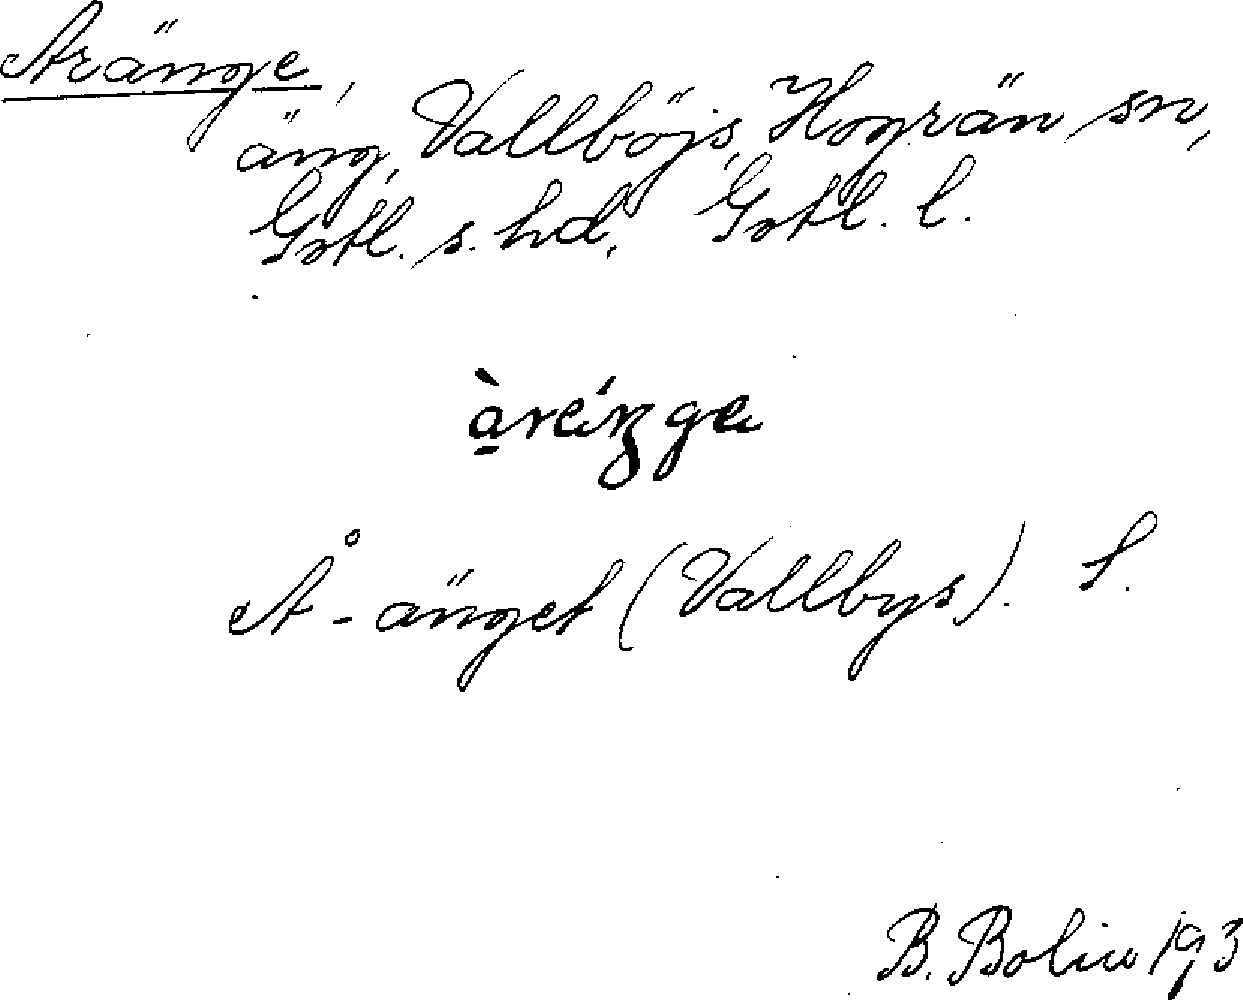 Aränge,
äng, Vallböjs, Hogrän sn,
Gotl. s. hd. Gotl. l.
Å-änget (Vallbys). S.
B. Bolin 193